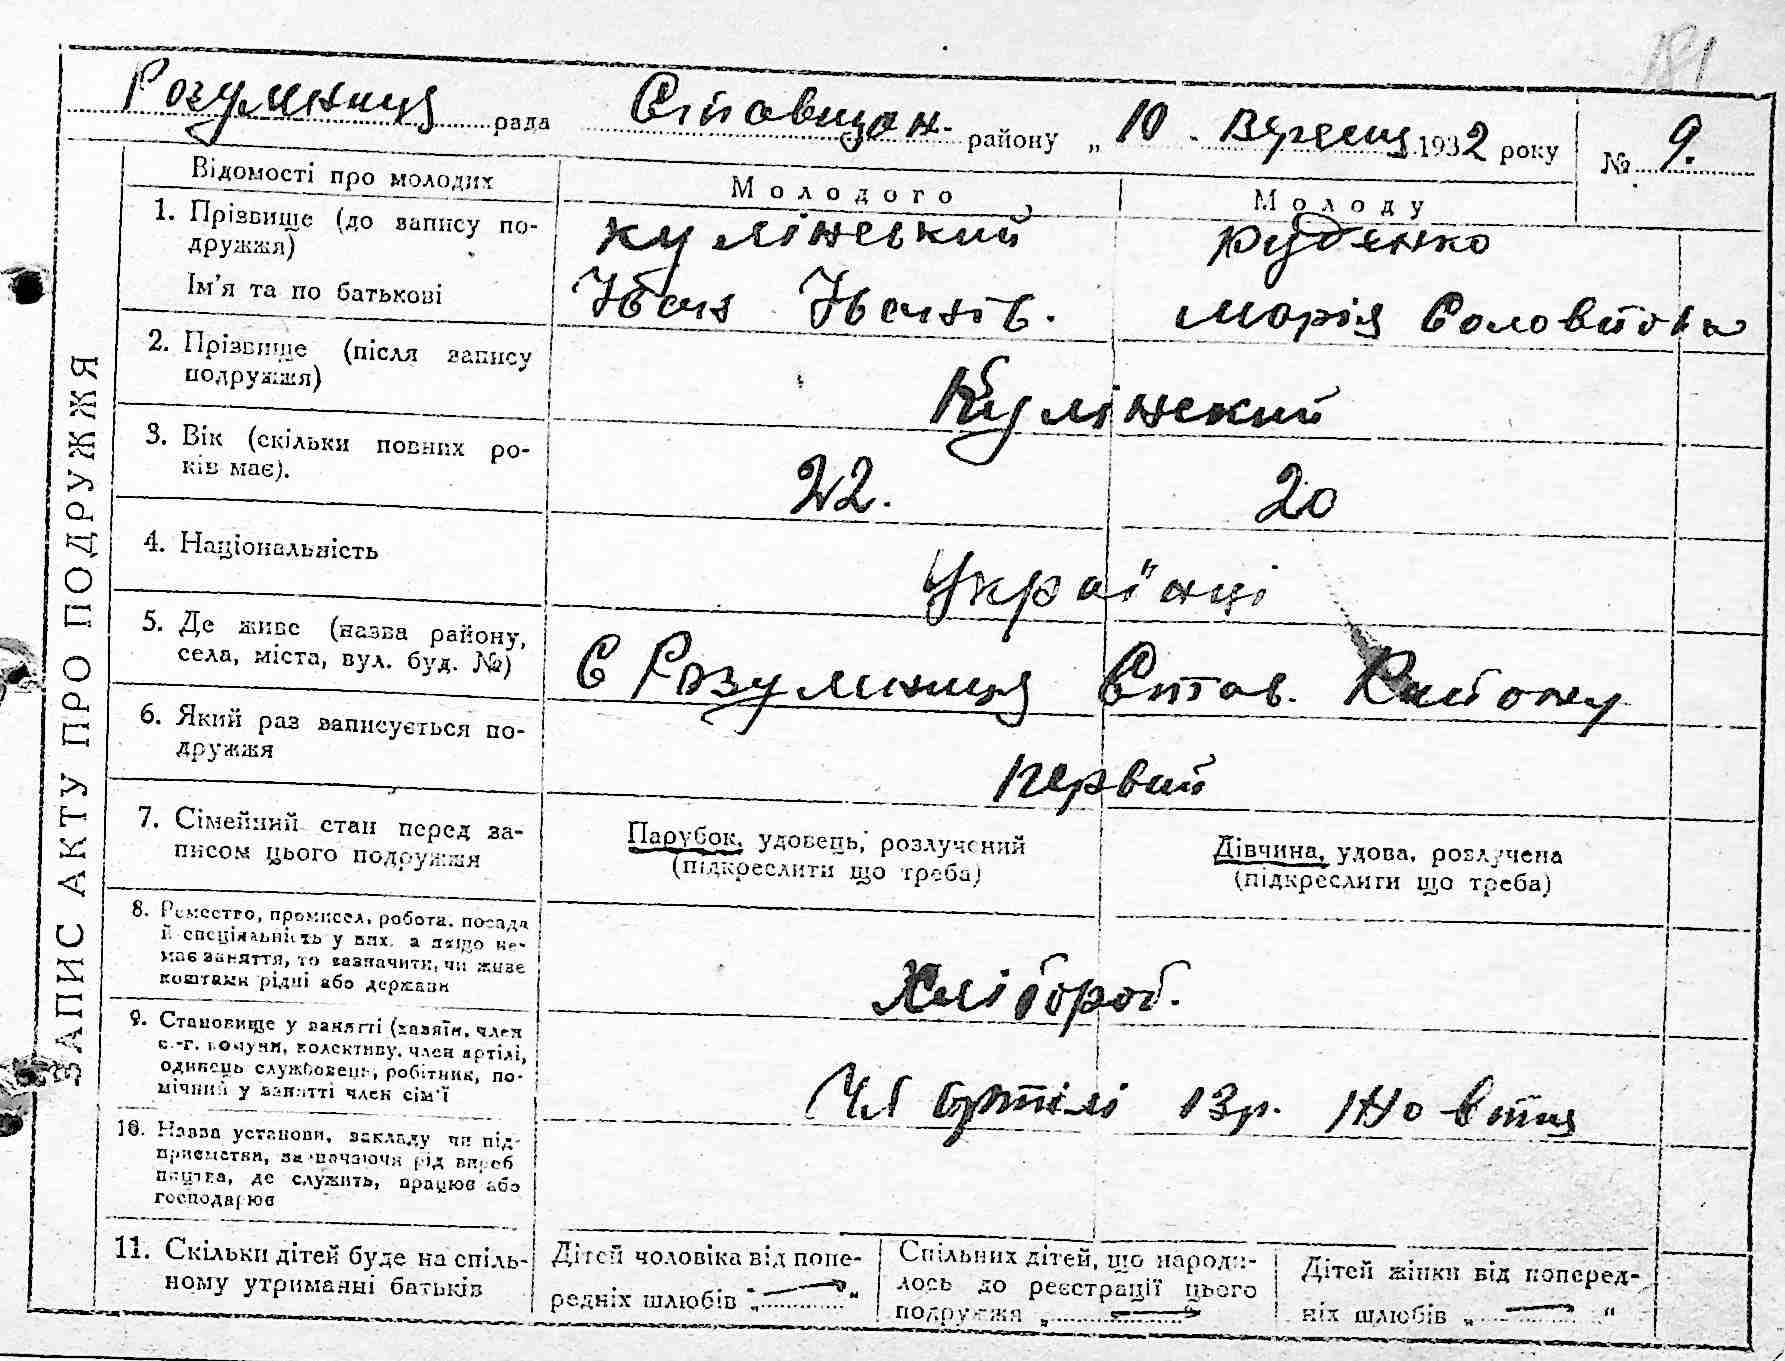 181
Розумниця рада Ставищан. району „ 10 . Вересня 1932 року № 9.
ЗАПИС АКТУ ПРО ПОДРУЖЖЯ
Відомості про молодих
Молодого
Молоду
1. Прізвище (до запису по-
дружжя)
Кулінський
Руденко
Ім'я та по батькові
Іван Іванів.
Марія
2. Прізвище (після запису
подружжя)
Кулінский
3. Вік (скільки повних ро-
ків має).
22.
20
4. Національність
Українці
5. Де живе (назва району,
села, міста, вул. буд. №)
С Розумниця Став. Району
6. Який раз записується по-
дружжя
Первий
7. Сімейний стан перед за-
писом цього подружжя
Парубок, удовець, розлучений
(підкреслити що треба)
Дівчина, удова, розлучена
(підкреслити що треба)
8. Ремество, промисел, робота, посада
й спеціяльність у них, а якщо не-
має заняття, то зазначити, чи живе
коштами рідні або держави
Хлібороб.
9. Становище у занятті (хазяїн, член
с.-г. комуни, колективу, член артілі,
одинець службовець, робітник, по-
мічний у занятті член сім'ї
Чл артілі 13р. Жовтня
10. Назва установи, закладу чи під-
приємства, зазначаючи рід вироб
ництва, де служить, працює або
господарює
11. Скільки дітей буде на спіль-
ному утриманні батьків
Дітей чоловіка від попе-
редніх шлюбів „ — “
Спільних дітей, що народи-
лось до реєстрації цього
подружжя „ — “
Дітей жінки від поперед-
ніх шлюбів „ — “